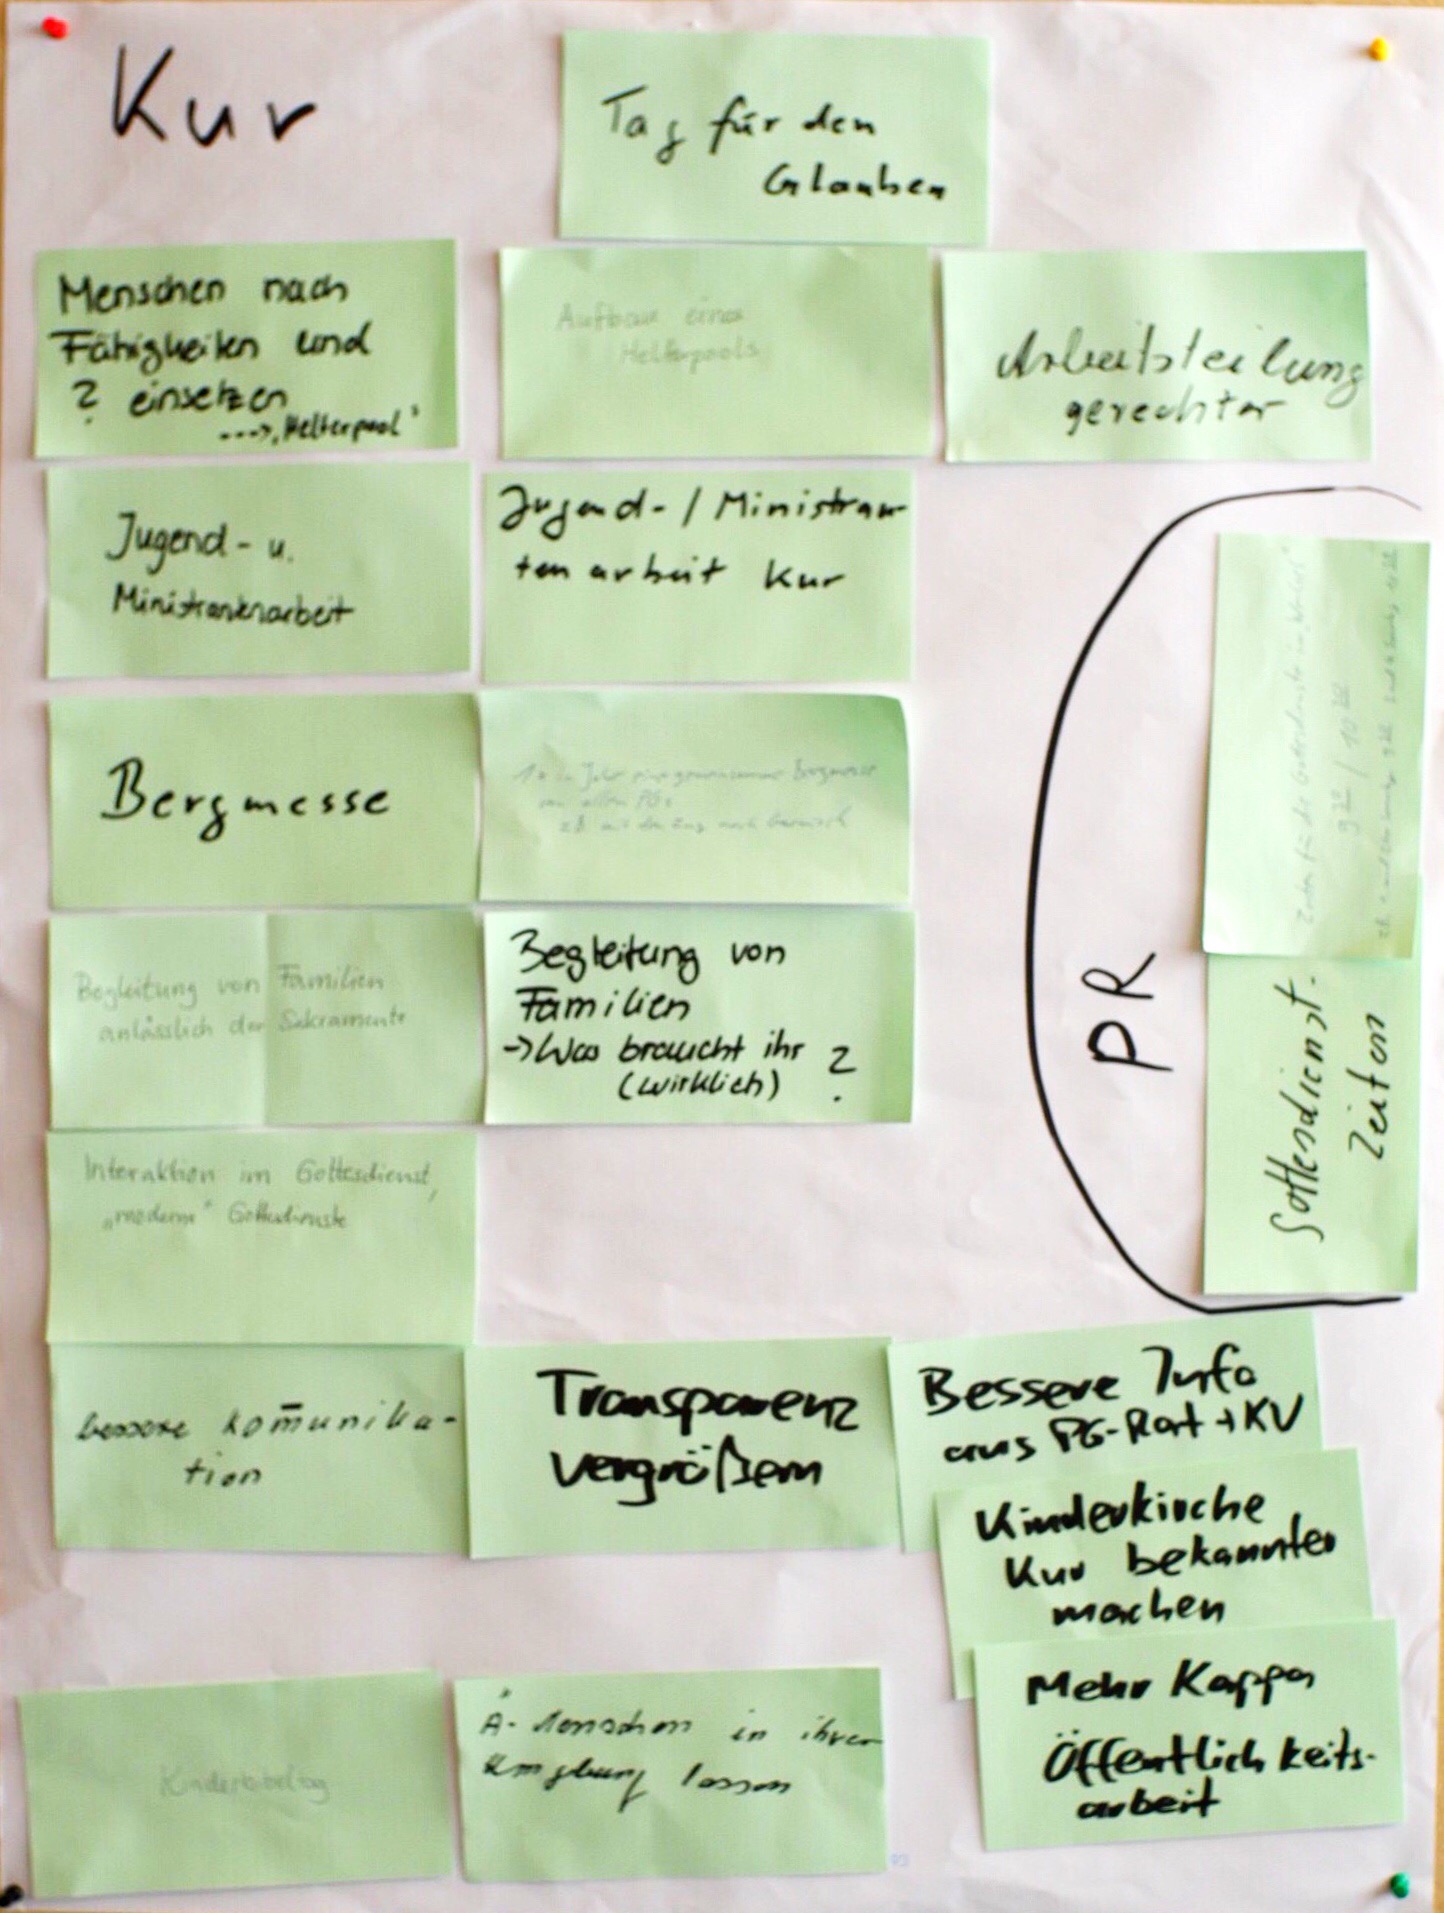 Kur
Tag für den
Glauben
Menschen nach
Fähigkeiten und
? einsetzen
---> "Helferpool"
Aufbau eines
Helferpools
Arbeitsteilung
gerechter
Jugend- u.
Ministrantenarbeit
Jugend-/Ministran
tenarbeit Kur
Bergmesse
1x im Jahr eine gemeinsame Bergmesse
von allen PGs
zB mit dem Zug nach Garmisch
Begleitung von Familien
anlässlich der Sakramente
Begleitung von
Familien
-> Was braucht ihr ?
(wirklich)
Interaktion im Gottesdienst,
"moderne" Gottesdienste
PR
Zeiten für die Gottesdienste
9 / 10
Gottesdienst-
Zeiten
bessere Kom̄unika-
tion
Transparenz
vergrößern
Bessere Info
aus PG-Rat + KV
Kinderkirche
Kur bekannter
machen
Mehr Kappa
Öffentlichkeits-
arbeit
Kinderbibeltag
Ä-Menschen in ihrer
Umgebung lassen